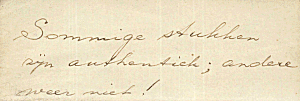 Sommige stukken
zijn authentiek; andere
weer niet!